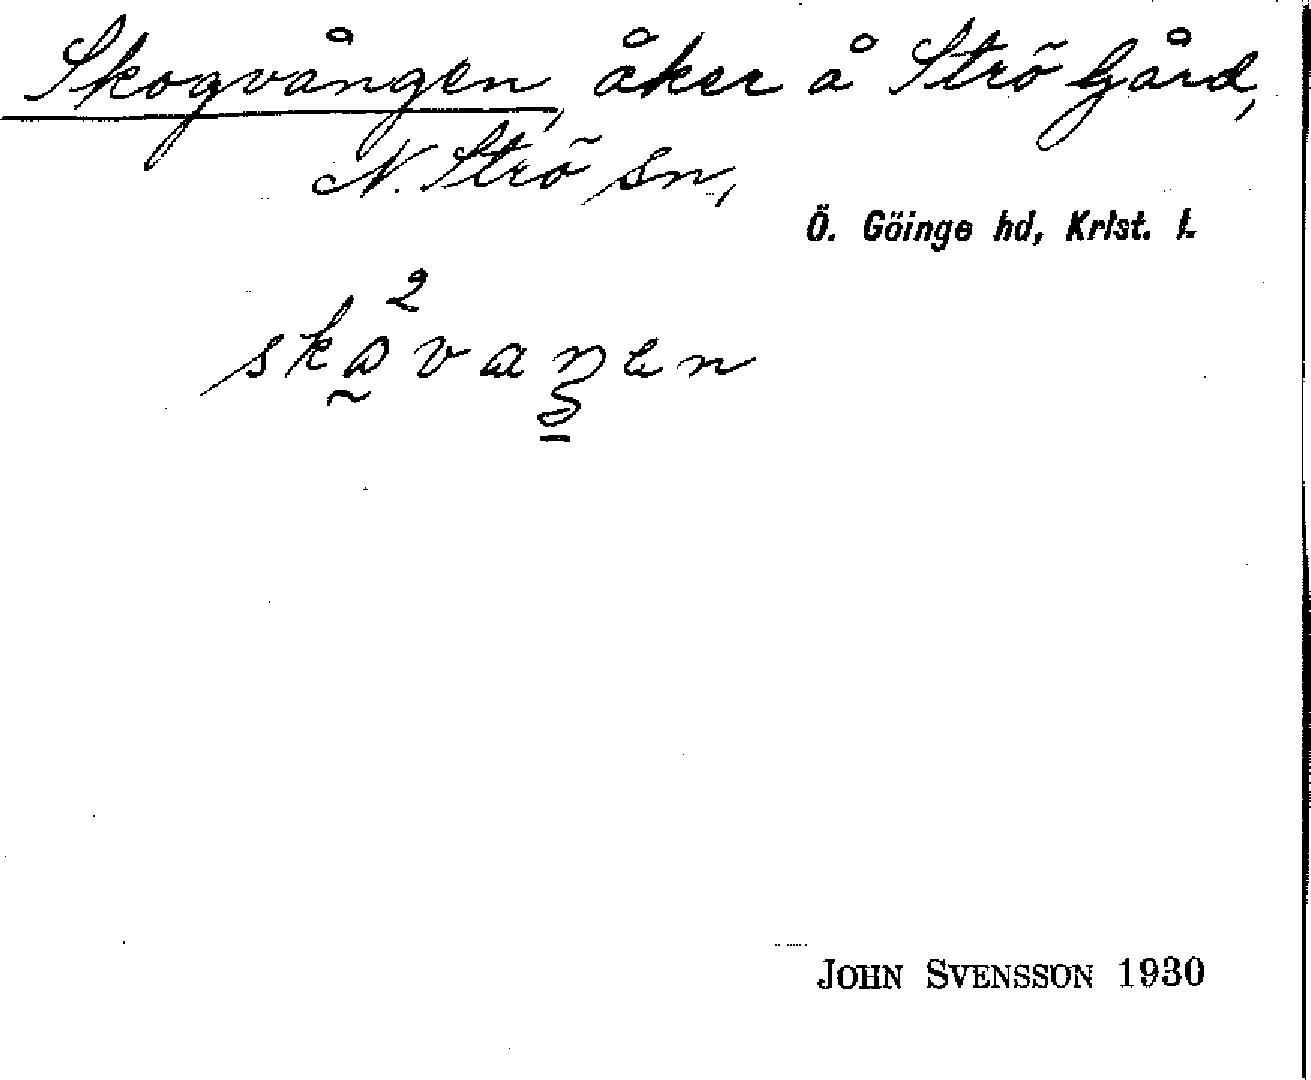 Skogvången, åker å Strö Gård,
N. Strö sn,
Ö. Göinge hd, Krist. l.
skå²vaŋen
JOHN SVENSSON 1930